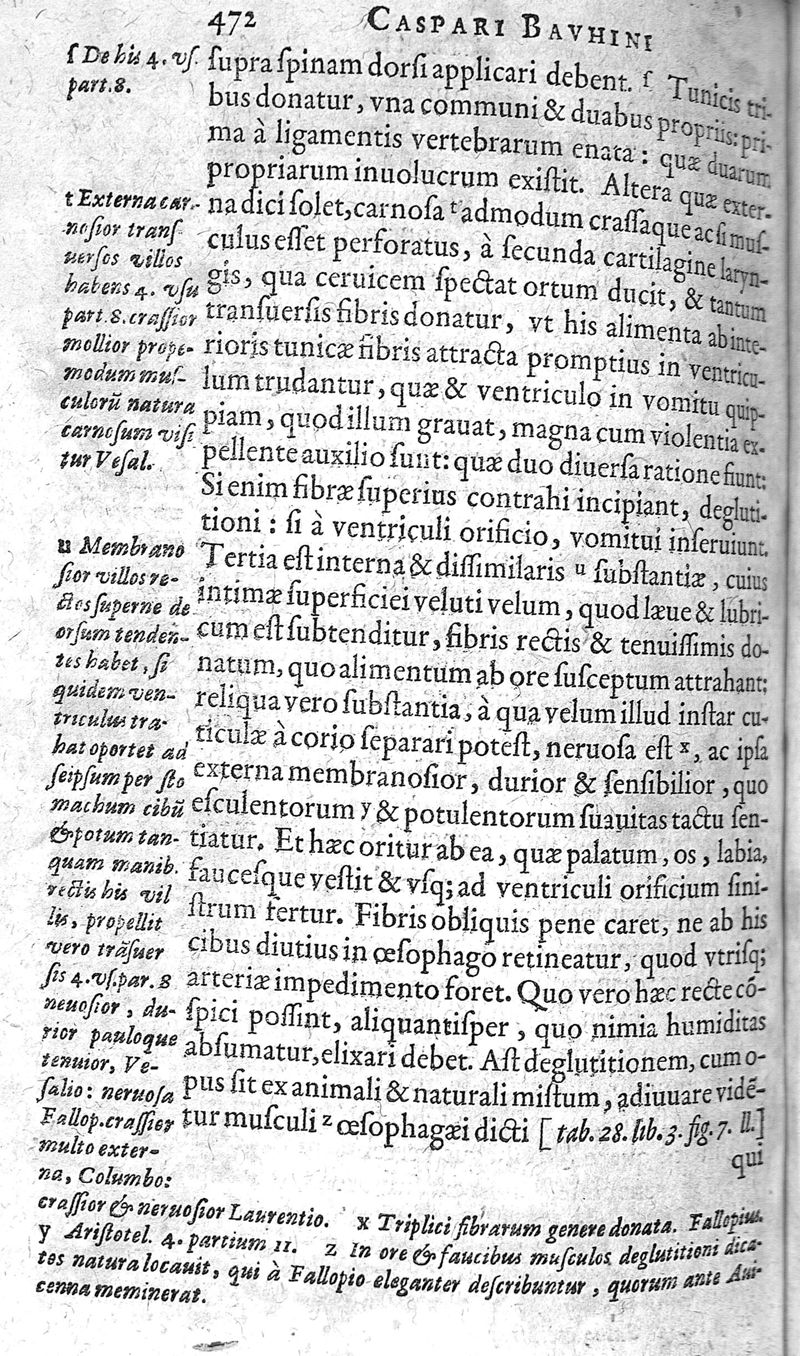 472 CASPARI BAVHINI
ſupra ſpinam dorſi applicari debent. ſ Tunicis tri-
bus donatur, vna communi & duabus propriis: pri-
ma à ligamentis vertebrarum enata: quæ duarum
propriarum inuolucrum exiſtit. Altera quæ exter-
na dici ſolet, carnoſa t admodum craſſaque ac ſi muſ-
culus eſſet perforatus, à ſecunda cartilagine laryn-
gis, qua ceruicem ſpectat ortum ducit, & tantum
tranſuerſis fibris donatur, vt his alimenta ab inte-
rioris tunicæ fibris attracta promptius in ventricu-
lum trudantur, quæ & ventriculo in vomitu quip-
piam, quod illum grauat, magna cum violentia ex-
pellente auxilio ſunt: quæ duo diuerſa ratione fiunt:
Si enim fibræ ſuperius contrahi incipiant, degluti-
tioni: ſi à ventriculi orificio, vomitui inſeruiunt.
Tertia eſt interna & diſſimilaris u ſubſtantiæ, cuius
intimæ ſuperficiei veluti velum, quod læue & lubri-
cum eſt ſubtenditur, fibris rectis & tenuiſſimis do-
natum, quo alimentum ab ore ſuſceptum attrahant:
reliqua vero ſubſtantia, à qua velum illud inſtar cu-
ticulæ à corio ſeparari poteſt, neruoſa eſt x, ac ipſa
externa membranoſior, durior & ſenſibilior, quo
eſculentorum y & potulentorum ſuauitas tactu ſen-
tiatur. Et hæc oritur ab ea, quæ palatum, os, labia,
fauceſque veſtit & vſq; ad ventriculi orificium ſini-
ſtrum fertur. Fibris obliquis pene caret, ne ab his
cibus diutius in œſophago retineatur, quod vtriſq;
arteriæ impedimento foret. Quo vero hæc recte cõ-
ſpici poſſint, aliquantiſper, quo nimia humiditas
abſumatur, elixari debet. Aſt deglutitionem, cum o-
pus ſit ex animali & naturali miſtum, adiuuare vidẽ-
tur muſculi z œſophagæi dicti [ tab. 28. lib. 3. fig. 7. ll.]
qui
ſ De his 4. vſ.
part. 8.
t Externa car-
noſior tranſ-
uerſos villos
habens 4. vſu
part. 8. craſſior
mollior prope-
modum muſ-
culorũ natura
carneſum viſi
tur Veſal.
u Membrano
ſior villos re-
ctos ſuperne de
orſum tenden-
tes habet, ſi
quidem ven-
triculus tra-
hat oportet ad
ſeipſum per ſto
machum cibũ
& potum tan-
quam manib.
rectis his vil
lis, propellit
vero trãſuer
ſis 4. vſ. par. 8
neuoſior, du-
rior pauloque
tenuior, Ve-
ſalio: neruoſa
Fallop. craſſier
multo exter-
na, Columbo:
craſſior & neruoſior Laurentio. x Triplici fibrarum genere donata. Fallopius.
y Ariſtotel. 4. partium 11. z In ore & faucibus muſculos deglutitioni dica-
tes natura locauit, qui à Fallopio eleganter deſcribuntur, quorum ante Aui-
cenna meminerat.